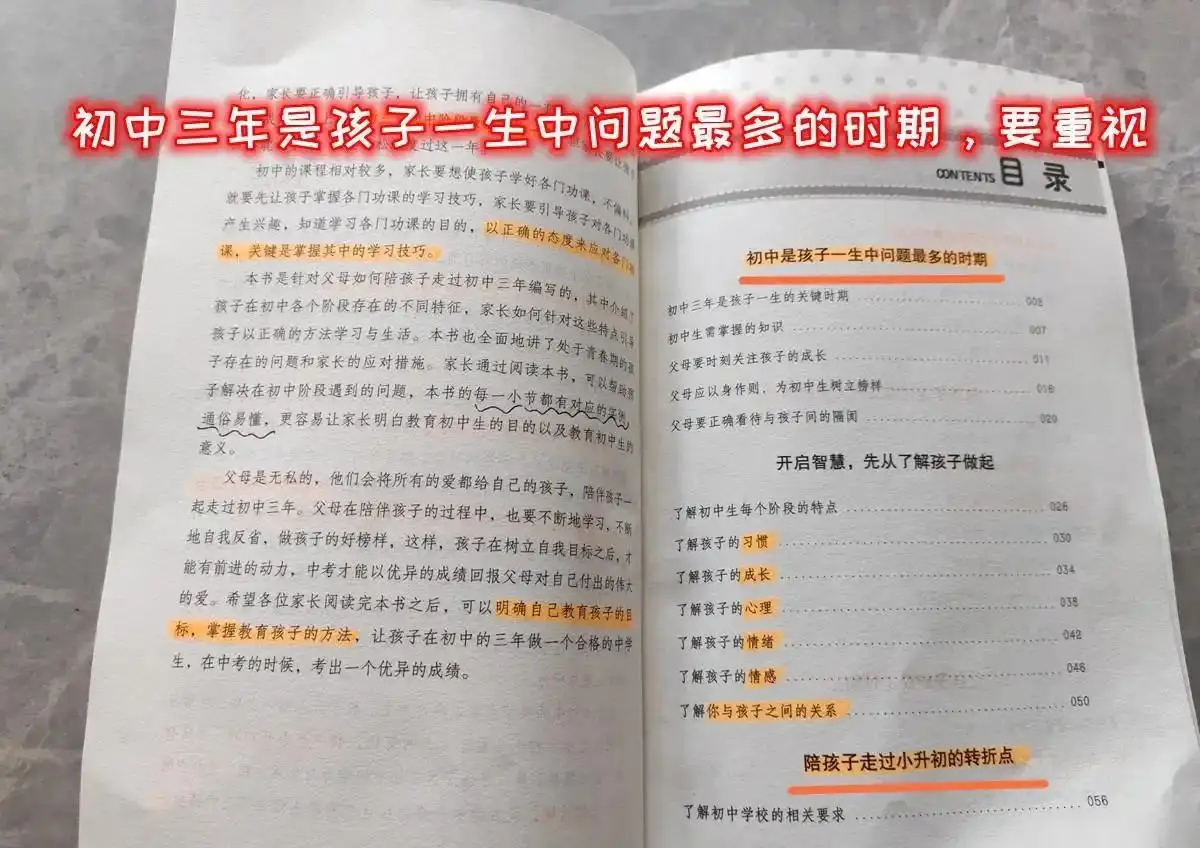 初中三年是孩子一生中问题最多的时期，要重视
化，家长要正确引导孩子，让孩子拥有自己的一
初中的课程相对较多，家长要想使孩子学好各门功课，不偏科，
就要先让孩子掌握各门功课的学习技巧，家长要引导孩子对各门功课
产生兴趣，知道学习各门功课的目的，以正确的态度来应对各门功
课，关键是掌握其中的学习技巧。
本书是针对父母如何陪孩子走过初中三年编写的，其中介绍了
孩子在初中各个阶段存在的不同特征，家长如何针对这些特点引导
孩子以正确的方法学习与生活。本书也全面地讲了处于青春期的孩
子存在的问题和家长的应对措施。家长通过阅读本书，可以帮助孩
子解决在初中阶段遇到的问题，本书的每一小节都有对应的实例，
通俗易懂，更容易让家长明白教育初中生的目的以及教育初中生的
意义。
父母是无私的，他们会将所有的爱都给自己的孩子，陪伴孩子一
起走过初中三年。父母在陪伴孩子的过程中，也要不断地学习，不断
地自我反省，做孩子的好榜样，这样，孩子在树立自我目标之后，才
能有前进的动力，中考才能以优异的成绩回报父母对自己付出的伟大
的爱。希望各位家长阅读完本书之后，可以明确自己教育孩子的目
标，掌握教育孩子的方法，让孩子在初中的三年做一个合格的中学
生，在中考的时候，考出一个优异的成绩。
CONTENTS 目 录
初中是孩子一生中问题最多的时期
初中三年是孩子一生的关键时期 002
初中生需掌握的知识 007
父母要时刻关注孩子的成长 011
父母应以身作则，为初中生树立榜样 018
父母要正确看待与孩子间的隔阂 020
开启智慧，先从了解孩子做起
了解初中生每个阶段的特点 026
了解孩子的习惯 030
了解孩子的成长 034
了解孩子的心理 038
了解孩子的情绪 042
了解孩子的情感 046
了解你与孩子之间的关系 050
陪孩子走过小升初的转折点
了解初中学校的相关要求 056